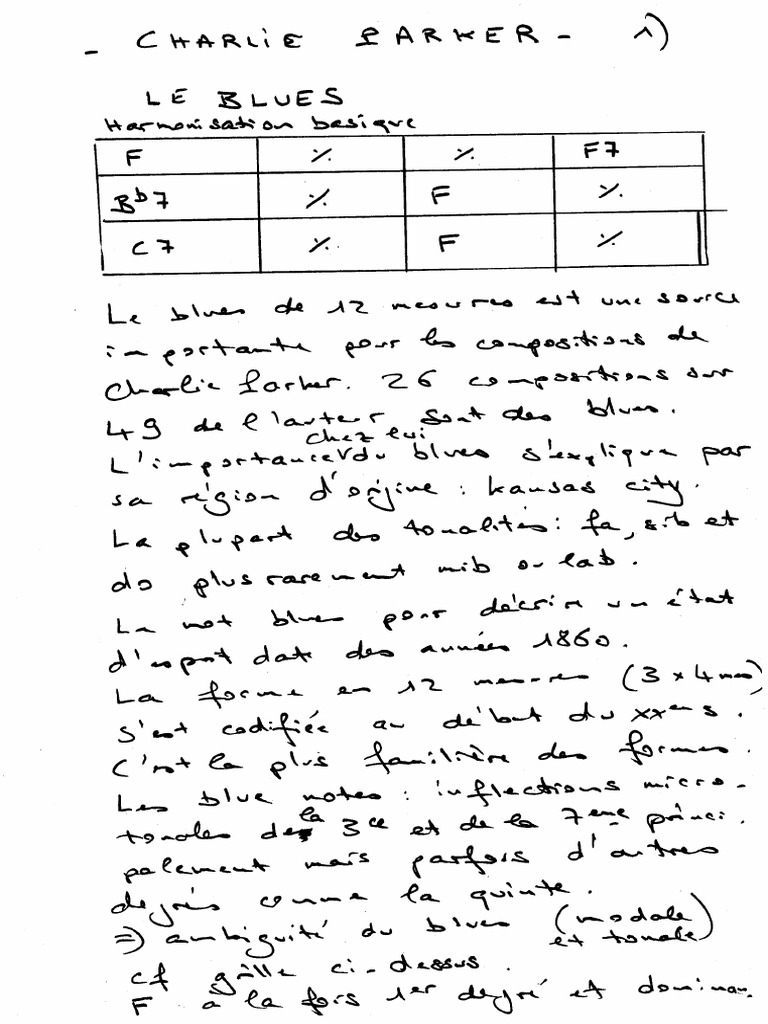 - CHARLIE PARKER - 1)
LE BLUES
Harmonisation basique
F | ٪ | ٪ | F7
Bb7 | ٪ | F | ٪
C7 | ٪ | F | ٪
Le blues de 12 mesures est une source
importante pour les compositions de
Charlie Parker. 26 compositions sur
49 de l'auteur sont des blues.
chez lui
L'importance du blues s'explique par
sa région d'origine : Kansas city.
La plupart des tonalités : fa, sib et
do plus rarement mib ou lab.
Le mot blues pour décrire un état
d'esprit date des années 1860.
La forme en 12 mesures (3 x 4 mes)
s'est codifiée au début du XXème s.
C'est la plus familière des formes.
Les blue notes : inflections micro-
tonales de la 3ce et de la 7eme princi-
palement mais parfois d'autres
degrés comme la quinte.
=) ambiguité du blues (modale
et tonale)
cf grille ci-dessus.
F a la fois 1er degré et dominan.